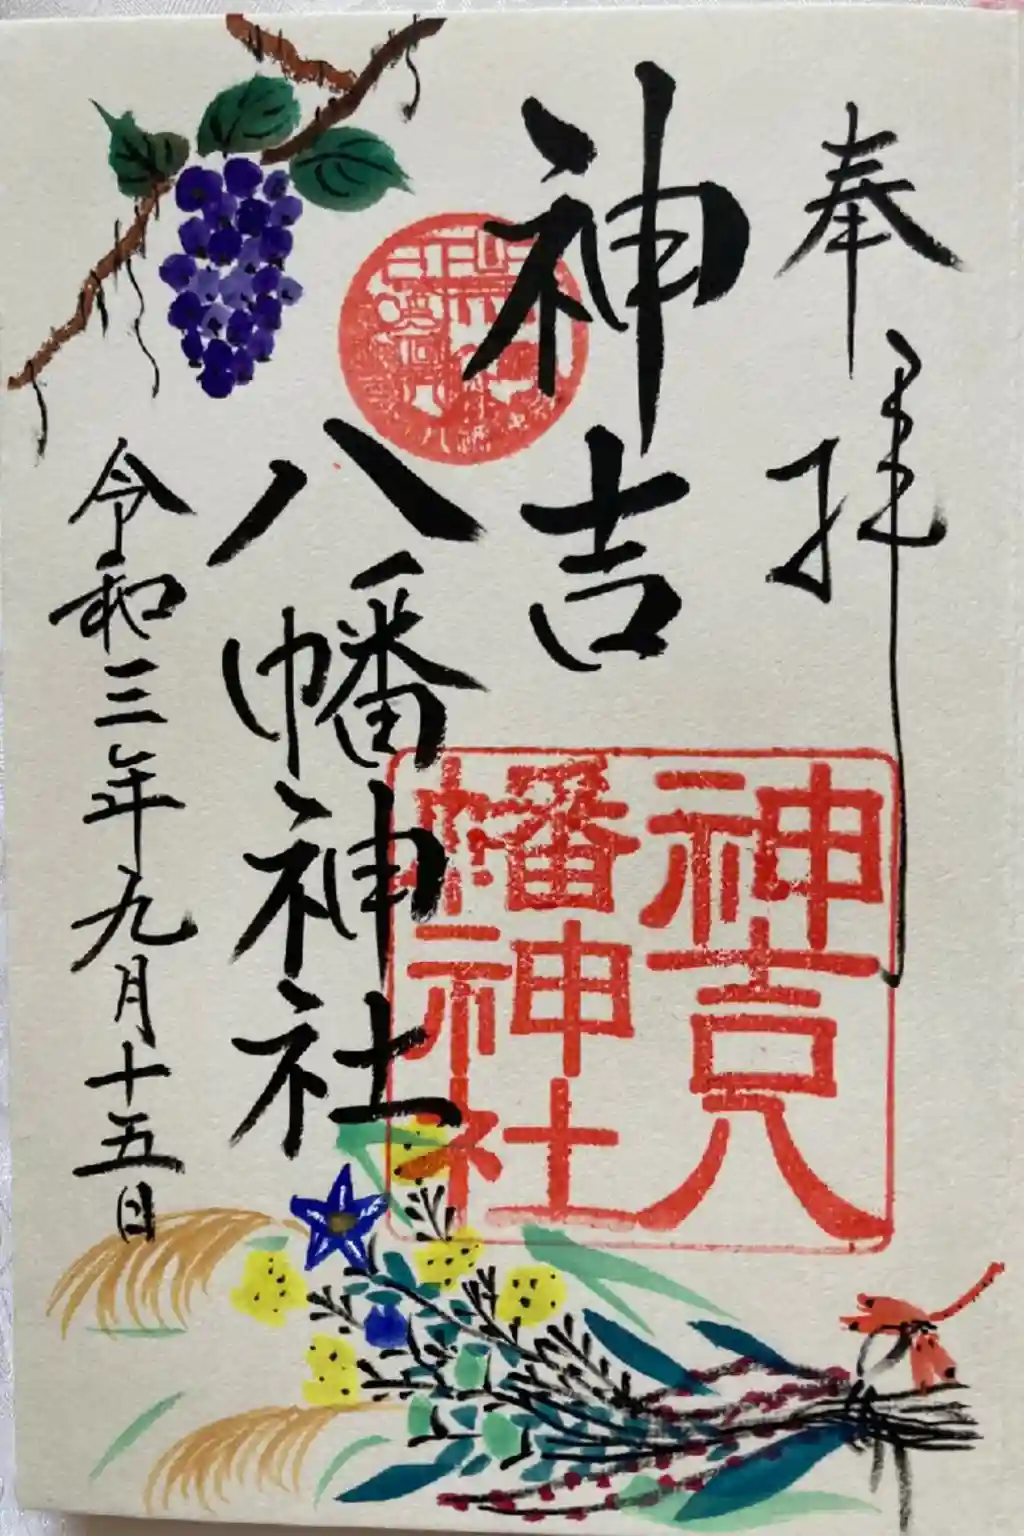 奉拝
神吉
八幡神社
令和三年九月十五日
神吉八
幡神社